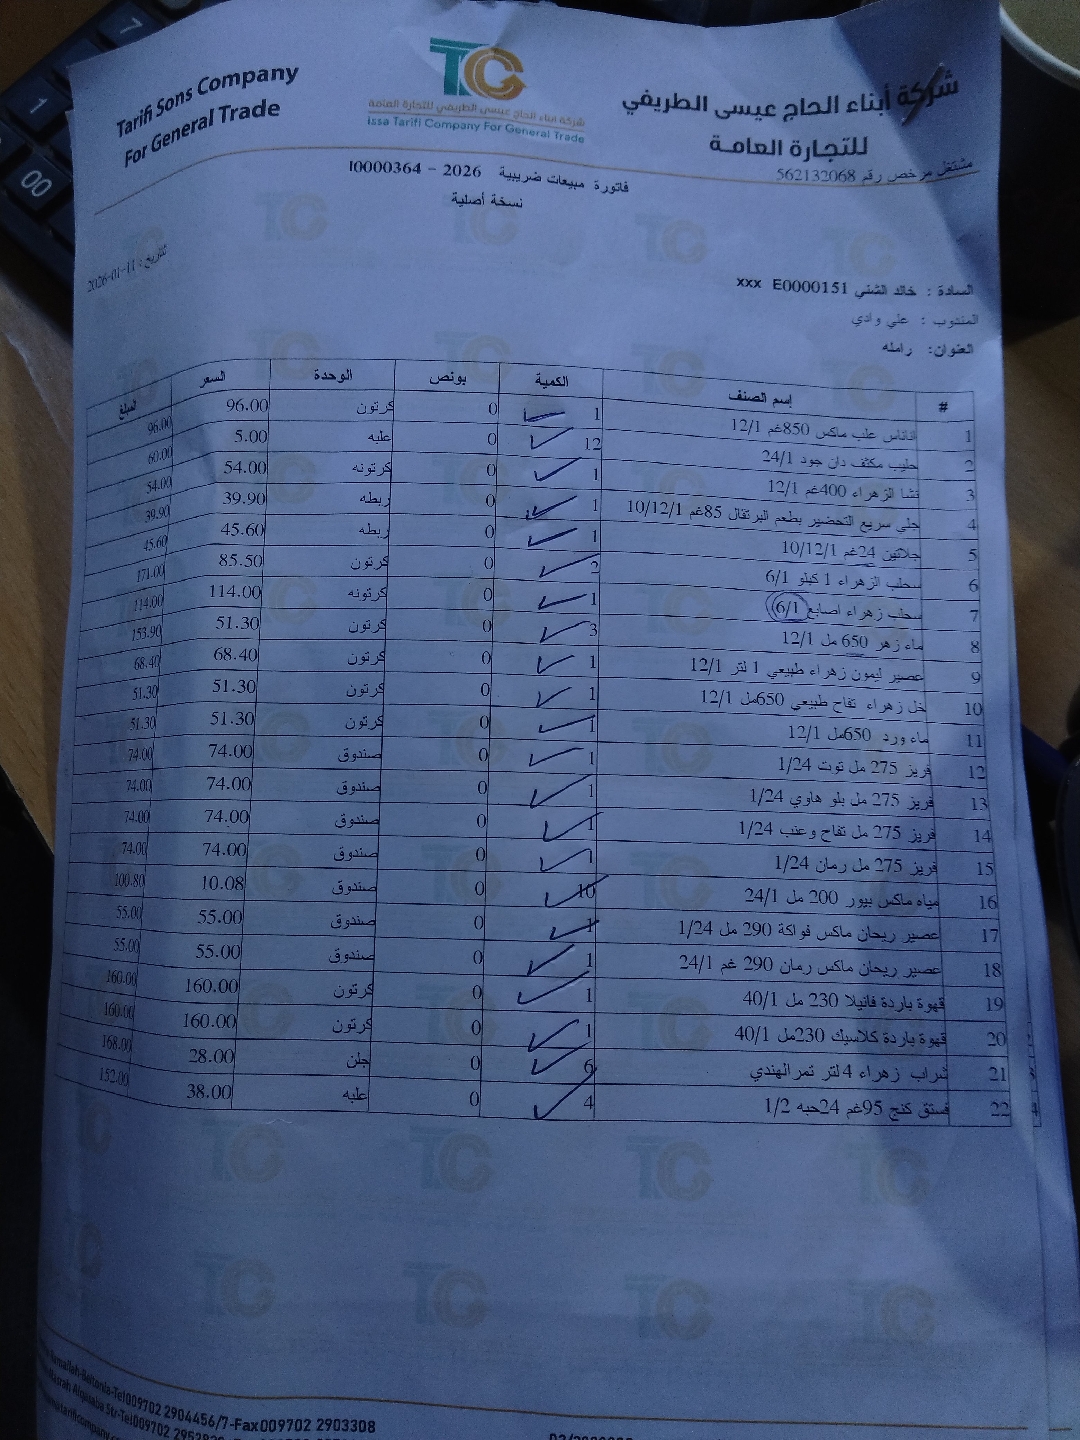 Tarifi Sons Company
For General Trade
TC
شركة ابناء الحاج عيسى الطريفي للتجارة العامة
Issa Tarifi Company For General Trade
شركة أبناء الحاج عيسى الطريفي
للتجارة العامة
مشتغل مرخص رقم 562132068
فاتورة مبيعات ضريبية 2026 - I0000364
نسخة أصلية
تاريخ : 11-01-2026
السادة : خالد الشني E0000151 xxx
المندوب : علي وادي
العنوان: رامله
# إسم الصنف الكمية بونص الوحدة السعر المبلغ
1 اناناس علب ماكس 850غم 12/1 1 0 كرتون 96.00 96.00
2 حليب مكثف دان جود 24/1 12 0 علبه 5.00 60.00
3 نشا الزهراء 400غم 12/1 1 0 كرتونه 54.00 54.00
4 جلي سريع التحضير بطعم البرتقال 85غم 10/12/1 1 0 ربطه 39.90 39.90
5 جلاتين 24غم 10/12/1 1 0 ربطه 45.60 45.60
6 سحلب الزهراء 1 كيلو 6/1 2 0 كرتون 85.50 171.00
7 سحلب زهراء اصابع 6/1 1 0 كرتونه 114.00 114.00
8 ماء زهر 650 مل 12/1 3 0 كرتون 51.30 153.90
9 عصير ليمون زهراء طبيعي 1 لتر 12/1 1 0 كرتون 68.40 68.40
10 خل زهراء تفاح طبيعي 650مل 12/1 1 0 كرتون 51.30 51.30
11 ماء ورد 650مل 12/1 1 0 كرتون 51.30 51.30
12 فريز 275 مل توت 1/24 1 0 صندوق 74.00 74.00
13 فريز 275 مل بلو هاوي 1/24 1 0 صندوق 74.00 74.00
14 فريز 275 مل تفاح وعنب 1/24 1 0 صندوق 74.00 74.00
15 فريز 275 مل رمان 1/24 1 0 صندوق 74.00 74.00
16 مياه ماكس بيور 200 مل 24/1 10 0 صندوق 10.08 100.80
17 عصير ريحان ماكس فواكة 290 مل 1/24 1 0 صندوق 55.00 55.00
18 عصير ريحان ماكس رمان 290 غم 24/1 1 0 صندوق 55.00 55.00
19 قهوة باردة فانيلا 230 مل 40/1 1 0 كرتون 160.00 160.00
20 قهوة باردة كلاسيك 230مل 40/1 1 0 كرتون 160.00 160.00
21 شراب زهراء 4 لتر تمر الهندي 6 0 جلن 28.00 168.00
22 فستق كنج 95غم 24حبه 1/2 4 0 علبه 38.00 152.00
Ramallah-Beitonia-Tel009702 2904456/7-Fax009702 2903308